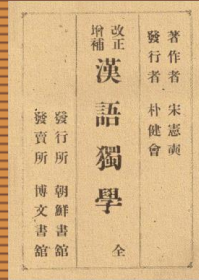 著作者 宋憲奭
發行者 朴健會
改正
增補
漢語獨學 全
發行所 朝鮮書館
發賣所 博文書館